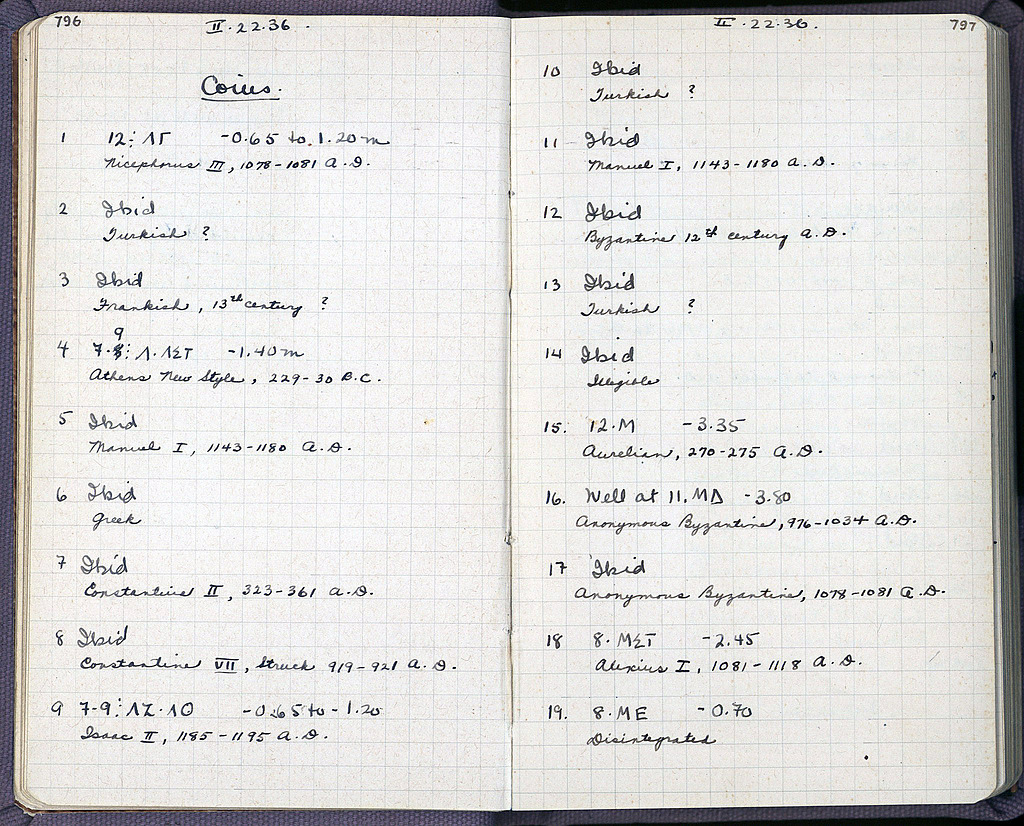 796
II.22.36.
Coins.
1 12:ΛΓ -0.65 to 1.20m
Nicephorus III, 1078-1081 A.D.
2 Ibid
Turkish ?
3 Ibid
Frankish, 13th century ?
9
4 7-8: Λ·ΛΣΤ -1.40m
Athens New Style, 229-30 B.C.
5 Ibid
Manuel I, 1143-1180 A.D.
6 Ibid
Greek
7 Ibid
Constantius II, 323-361 A.D.
8 Ibid
Constantine VII, struck 919-921 A.D.
9 7-9:ΛΖ·ΛΟ -0.65 to -1.20
Isaac II, 1185-1195 A.D.
II.22.36.
797
10 Ibid
Turkish ?
11 Ibid
Manuel I, 1143-1180 A.D.
12 Ibid
Byzantine 12th century A.D.
13 Ibid
Turkish ?
14 Ibid
Illegible
15. 12.M -3.35
Aurelian, 270-275 A.D.
16. Well at 11.ΜΔ -3.80
Anonymous Byzantine, 976-1034 A.D.
17 Ibid
Anonymous Byzantine, 1078-1081 A.D.
18 8.ΜΣΤ -2.45
Alexius I, 1081-1118 A.D.
19. 8.ΜΕ -0.70
Disintegrated